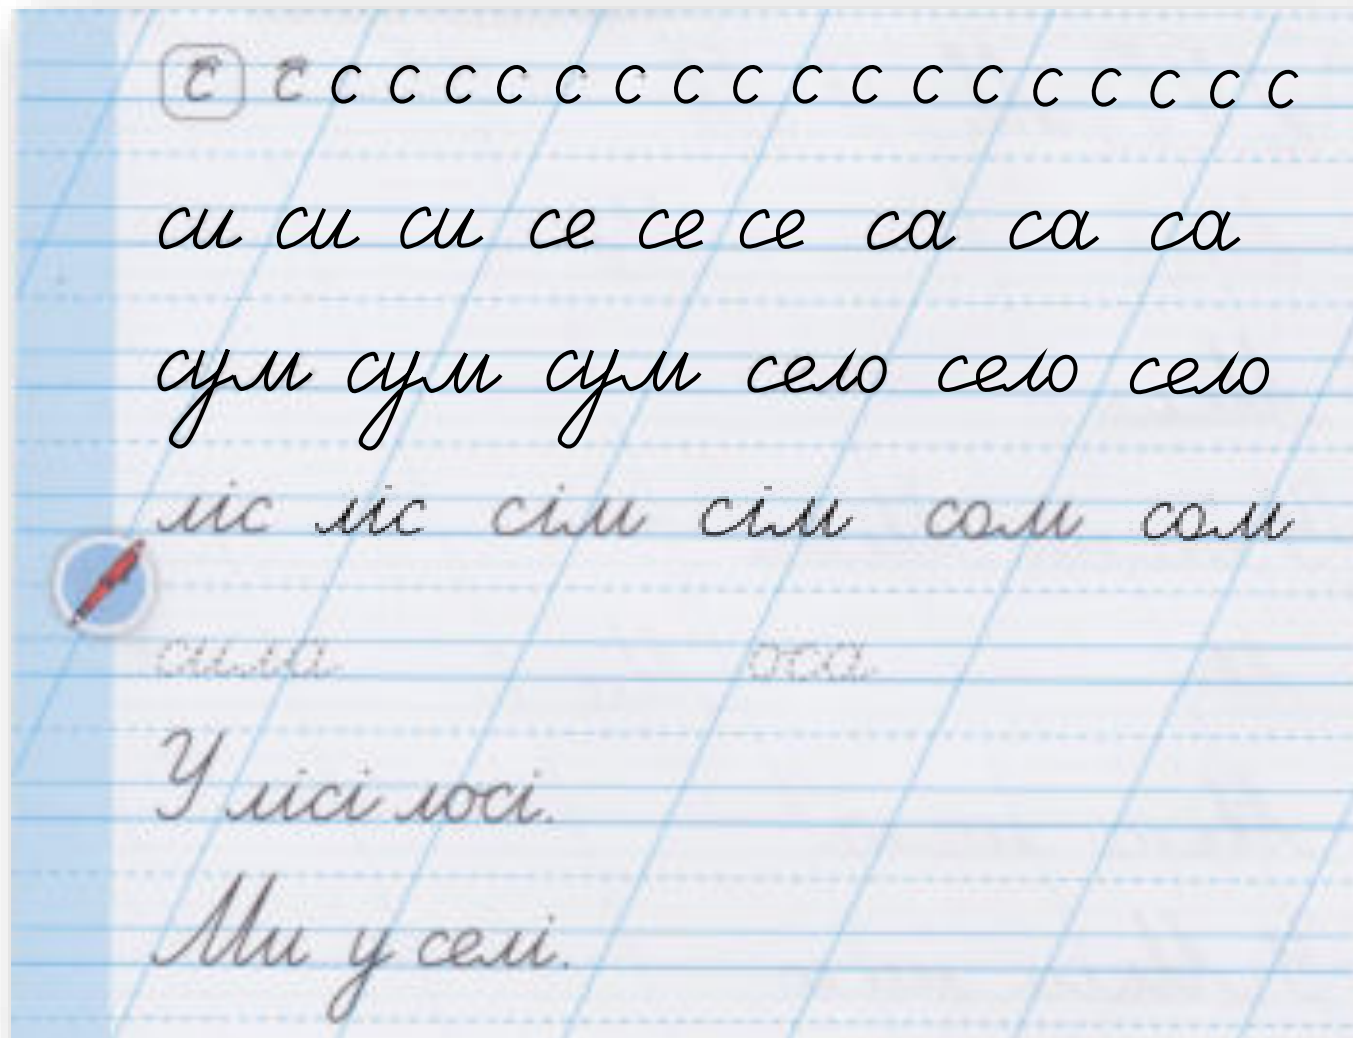 с с с с с с с с с с с с с с с с с с с
си си си се се се са са са
сум сум сум село село село
ліс ліс сім сім сом сом
сила оса
У лісі лосі.
Ми у селі.